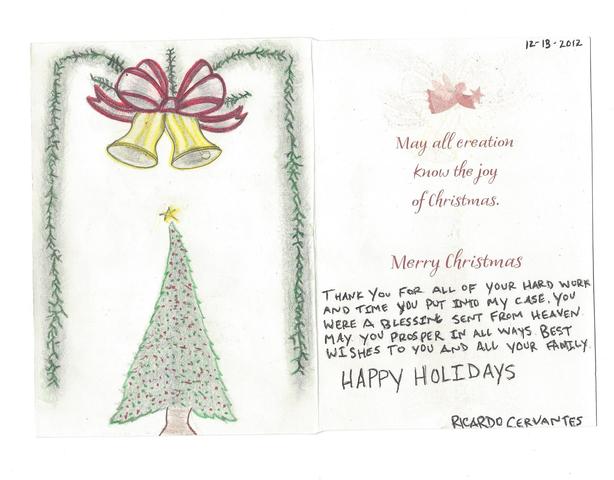 12-13-2012
May all creation
know the joy
of Christmas.
Merry Christmas
THANK YOU FOR ALL OF YOUR HARD WORK
AND TIME YOU PUT INTO MY CASE. YOU
WERE A BLESSING SENT FROM HEAVEN.
MAY YOU PROSPER IN ALL WAYS. BEST
WISHES TO YOU AND ALL YOUR FAMILY.
HAPPY HOLIDAYS
RICARDO CERVANTES